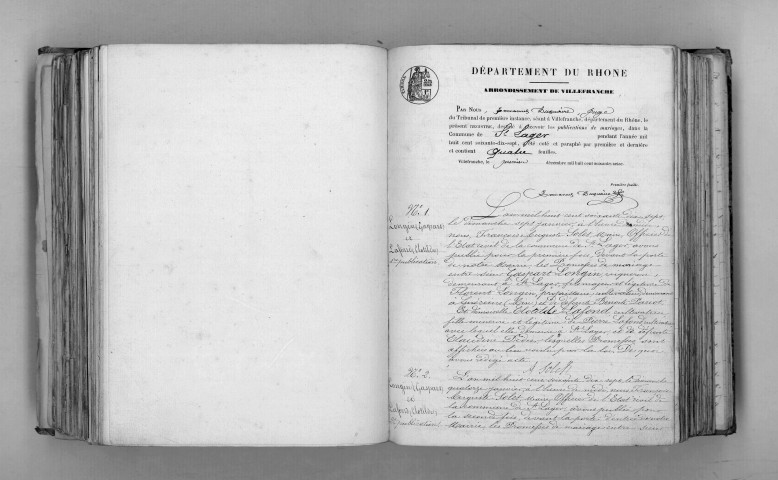 DÉPARTEMENT DU RHONE
ARRONDISSEMENT DE VILLEFRANCHE
PAR NOUS, Juge
du Tribunal de première instance, séant à Villefranche, département du Rhône, le
présent registre, destiné à recevoir les publications de mariages, dans la
Commune de St Lager pendant l'année mil
huit cent soixante-dix-sept, été coté et paraphé par première et dernière
et contient quatre feuilles.
Villefranche, le décembre mil huit cent soixante-seize.
Première feuille.
N° 1
Longin (Gaspard)
et
Lafond (Clotilde)
1re publication
L'an mil huit cent soixante dix sept
le dimanche sept janvier, à l'heure de
nous, François Auguste Solet, Maire, Officier de
l'Etat civil de la commune de St Lager, avons
publié pour la première fois, devant la porte
les Promesses de mariage
entre sieur Gaspart Longin, vigneron
demeurant à St Lager, fils majeur et légitime de
Florent Longin, propriétaire cultivateur demeurant
à (Ain) et de défunte
Et demoiselle Clotilde Lafond cultivatrice
fille mineure et légitime de Pierre Lafond
avec lequel elle demeure à St Lager, et de défunte
Claudine lesquelles Promesses sont
affichées au lieu voulu par la loi. De quoi
avons rédigé acte.
A Solet
N° 2
Longin (Gaspard)
et
Lafond (Clotilde)
2e publication
L'an mil huit cent soixante dix sept le dimanche
quatorze janvier à l'heure de midi, nous
Auguste Solet, Maire, Officier de l'Etat civil de
la commune de St Lager, avons publié pour
la seconde fois, devant la porte
Mairie, les Promesses de mariage entre sieur